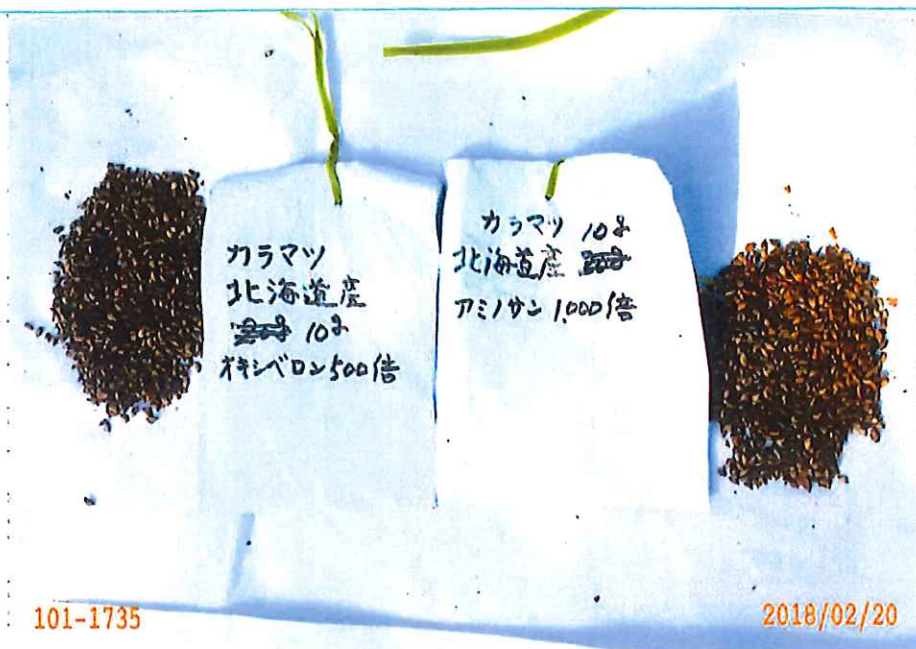 カラマツ
北海道産
10g
オキシベロン500倍
カラマツ 10g
北海道産
アミノサン 1,000倍
101-1735
2018/02/20